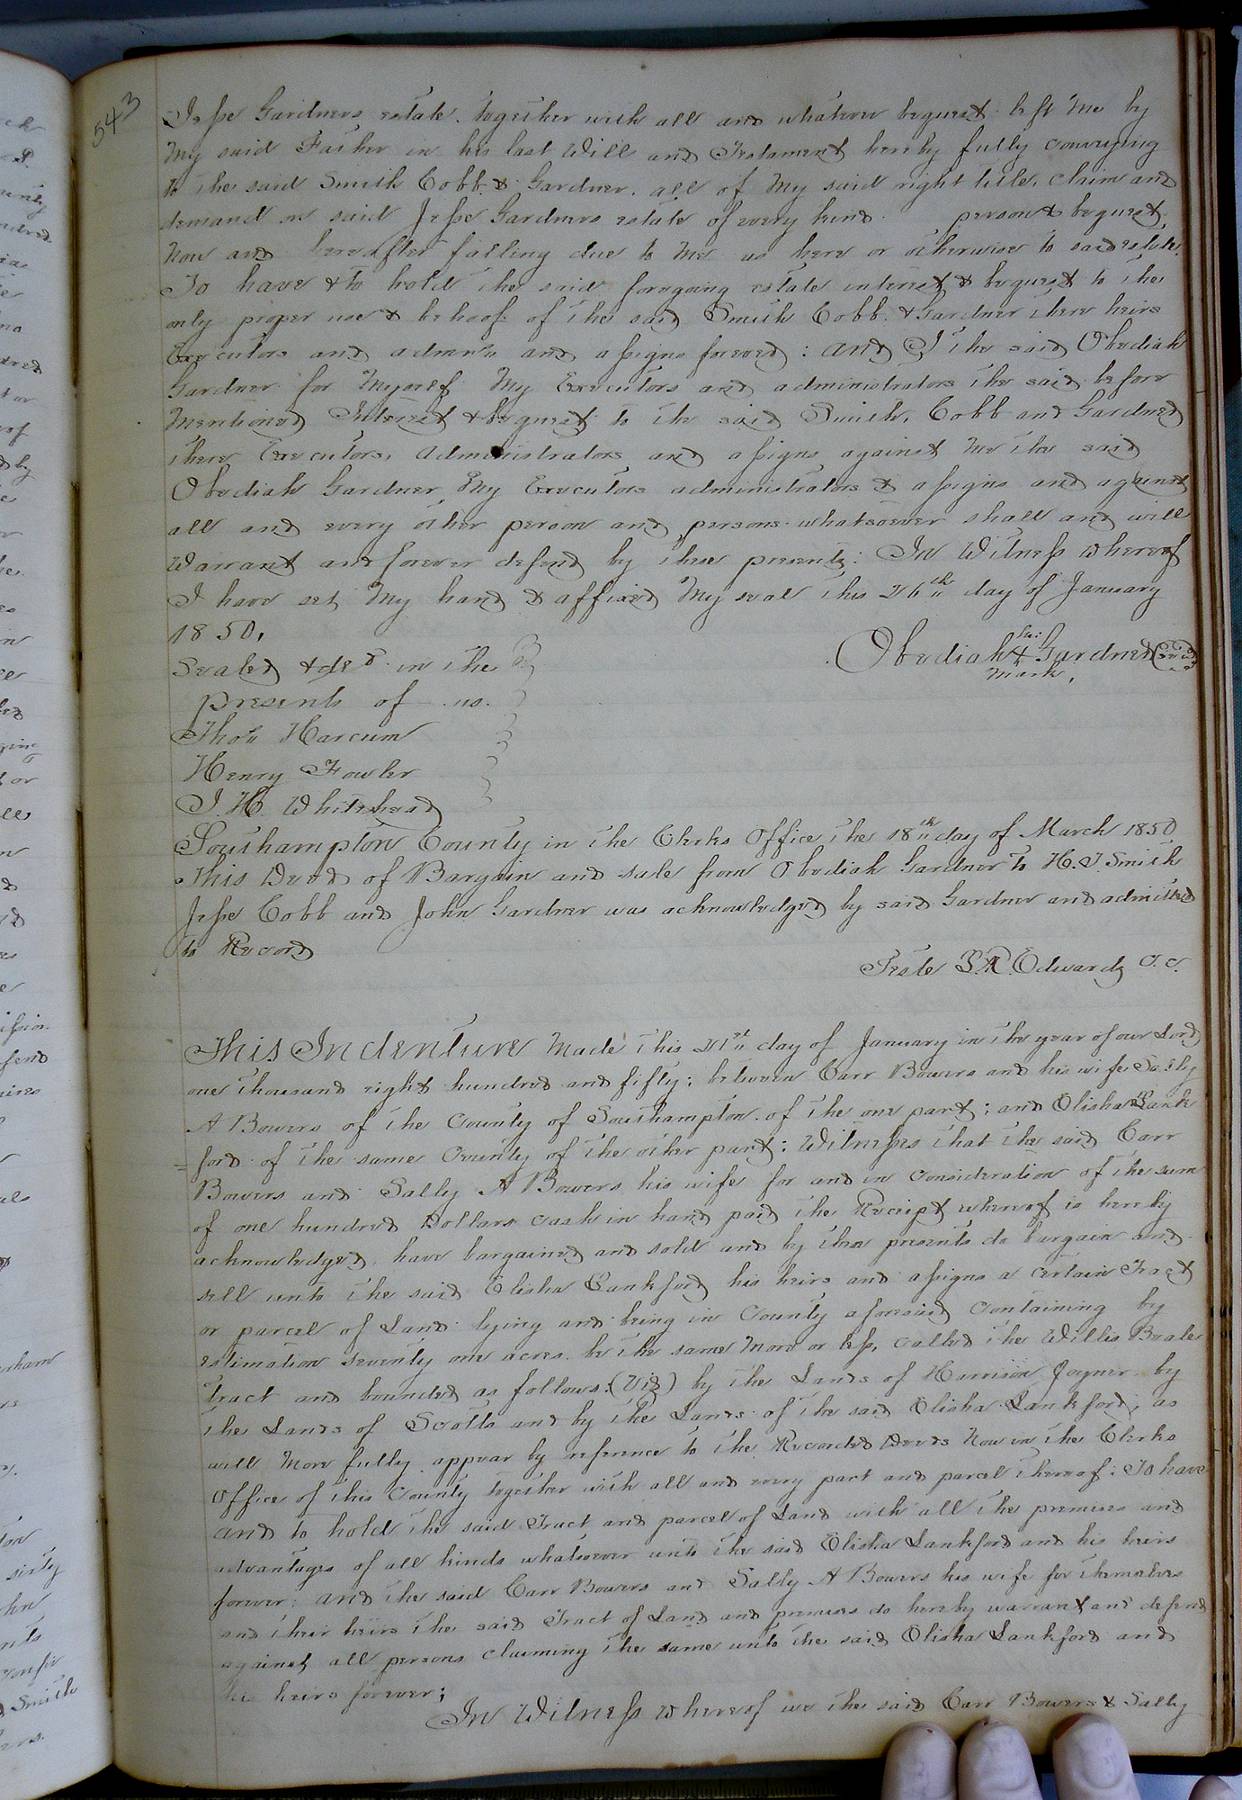 543
Jesse Gardners estate. together with all and whatever bequest left me by
My said Father in his last Will and Testament hereby fully conveying
to the said Smith Cobb & Gardner. all of My said right title, claim and
demand in said Jesse Gardners estate of every kind. person & bequest
Now and hereafter falling due to Me as here or otherwise to said estate.
To have & to hold the said foregoing estate interest & bequest to the
only proper use & behoof of the said Smith Cobb. & Gardner there heirs
Executors and admrs and assigns forever: and I the said Obediah
Gardner for Myself My Executors and administrators the said before
Mentioned Interest & bequest to the said Smith, Cobb and Gardner
there Executors, administrators and assigns against Me the said
Obediah Gardner, My Executors administrators & assigns and against
all and every other person and persons whatsoever shall and will
Warrant and forever defend by these presents: In Witness whereof
I have set My hand & affixed My seal this 26th day of January
1850.
Obediah his X mark Gardner Seal
Sealed & deld in the
presents of us.
Thos Harcum
Henry Fowler
J. H. Whitehead
Southampton County in the Clerks Office the 18th day of March 1850
This Deed of Bargain and sale from Obediah Gardner to H. J. Smith
Jesse Cobb and John Gardner was acknowledged by said Gardner and admitted
to Record
Teste L. R. Edwards C. C.
This Indenture Made this 21st day of January in the year of our Lord
one thousand eight hundred and fifty; between Carr Bowers and his wife Sally
A Bowers of the County of Southampton of the one part; and Elisha Lank
=ford of the same County of the other part: Witnesses that the said Carr
Bowers and Sally A Bowers his wife for and in consideration of the sum
of one hundred Dollars cash in hand paid the Receipt whereof is hereby
acknowledged, have bargained and sold and by these presents do bargain and
sell unto the said Elisha Lankford his heirs and assigns a certain Tract
or parcel of Land lying and being in County aforesaid containing by
estimation seventy one acres be the same More or less, called the Willis Beale
Tract and bounded as follows: (Viz) by the Lands of Harrison Joyner by
the Lands of Scotts and by the Lands of the said Elisha Lankford; as
will More fully appear by reference to the Recorded Deeds Now in the Clerks
Office of this County together with all and every part and parcel thereof: To have
and to hold the said Tract and parcel of Land with all the premises and
advantages of all kinds whatsoever unto the said Elisha Lankford and his heirs
forever: and the said Carr Bowers and Sally A Bowers his wife for themselves
and their heirs the said Tract of Land and premises do hereby warrant and defend
against all persons claiming the same unto the said Elisha Lankford and
his heirs forever;
In Witness whereof we the said Carr Bowers & Sally